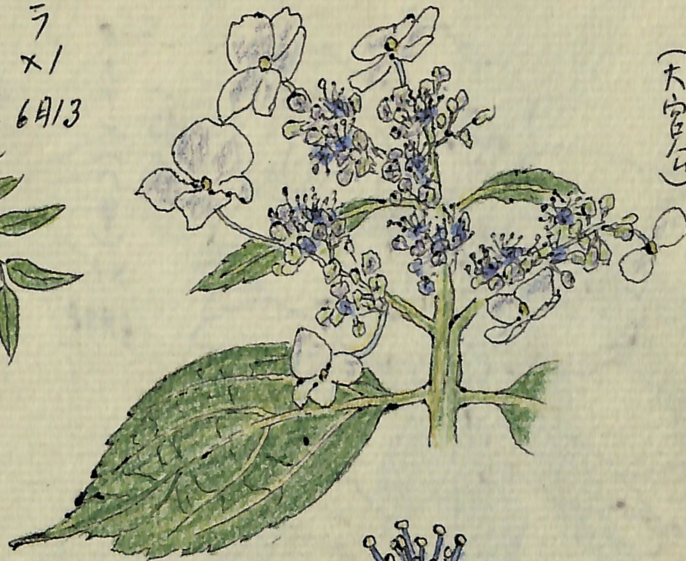 ラ
×1
6月13
(大宮公)